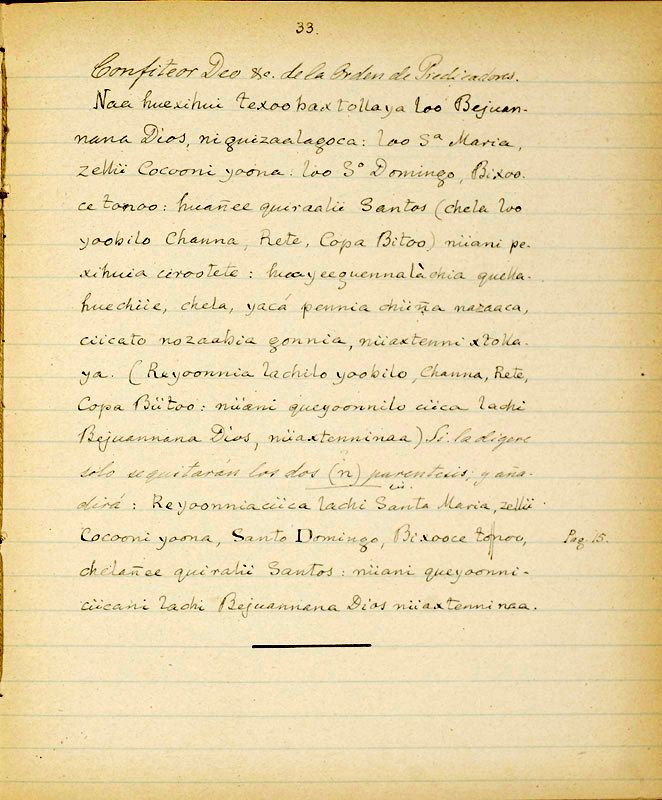 33.
Confiteor Deo &c. de la Orden de Predicadores.
Naa huexihui texoobaxtollaya loo Bejuan-
nana Dios, niquizaalagoca: loo Sª Maria,
zellii Cocooni yoona: loo Sº Domingo, Bixoo-
ce tonoo: huañee quiraalii Santos (chela loo
yoobilo Channa, Rete, Copa Bitoo) niiani pe-
xihuia cirootete: huayeequennalàchia quella-
huechiie, chela, yacá pennia chiiña nazaaca,
ciicato nozaabia gonnia, niiaxtenni xtolla-
ya. (Reyoonnia lachilo yoobilo, Channa, Rete,
Copa Biitoo: niiani queyoonnilo ciica lachi
Bejuannana Dios, niiaxtenninaa) Si la digere
solo se quitarán los dos (n) parentesis; y aña-
dirá: Reyoonniaciica lachi Santa Maria, zellii
Cocooni yoona, Santo Domingo, Bixooce tonoo,
Pag. 15.
chelañee quiralii Santos: niiani queyoonni-
ciicani lachi Bejuannana Dios niiaxtenninaa.